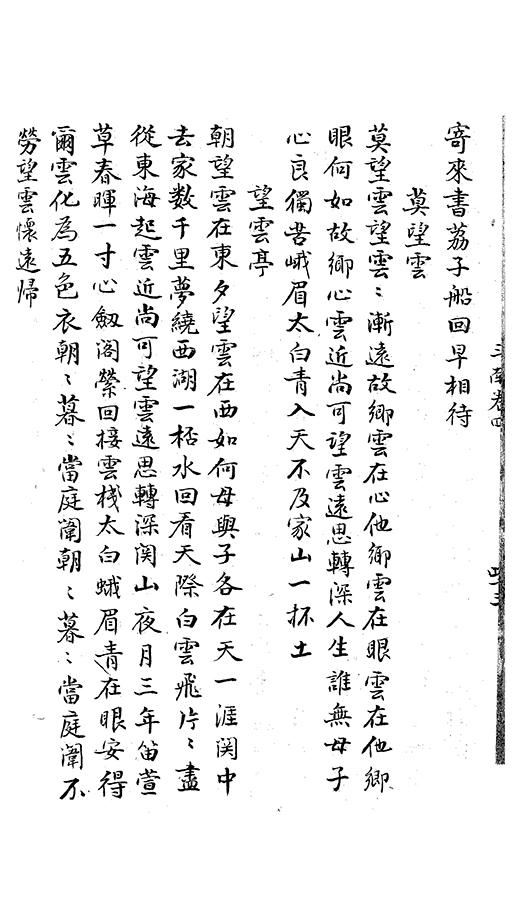 寄來書荔子船回早相待
莫望雲
莫望雲望雲〻漸遠故鄉雲在心他鄉雲在眼雲在他鄉
眼何如故鄉心雲近尚可望雲遠思轉深人生誰無母子
心良獨苦峨眉太白青入天不及家山一抔土
望雲亭
朝望雲在東夕望雲在西如何母與子各在天一涯関中
去家数千里夢繞西湖一桮水回看天際白雲飛片〻盡
從東海起雲近尚可望雲遠思轉深関山夜月三年笛萱
草春暉一寸心劔阁縈回接雲棧太白蛾眉青在眼安得
爾雲化為五色衣朝〻暮〻當庭闈朝〻暮〻當庭闈不
勞望雲懷遠歸